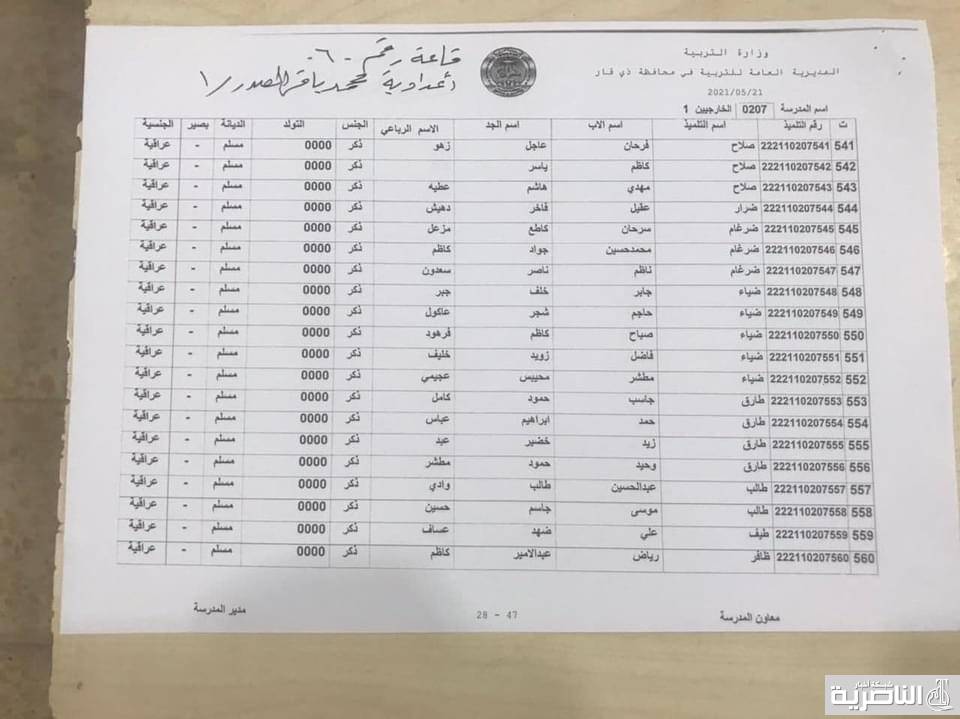 وزارة التربية
المديرية العامة للتربية في محافظة ذي قار
2021/05/21
قاعة رقم ٦٠
أعدادية محمد باقر الصدر / ١
اسم المدرسة 0207 الخارجيين 1
ت رقم التلميذ اسم التلميذ اسم الاب اسم الجد الاسم الرباعي الجنس التولد الديانة بصير الجنسية
541 222110207541 صلاح فرحان عاجل زهو ذكر 0000 مسلم - عراقية
542 222110207542 صلاح كاظم ياسر ذكر 0000 مسلم - عراقية
543 222110207543 صلاح مهدي هاشم عطيه ذكر 0000 مسلم - عراقية
544 222110207544 ضرار عقيل فاخر دهيش ذكر 0000 مسلم - عراقية
545 222110207545 ضرغام سرحان كاطع مزعل ذكر 0000 مسلم - عراقية
546 222110207546 ضرغام محمدحسين جواد كاظم ذكر 0000 مسلم - عراقية
547 222110207547 ضرغام ناظم ناصر سعدون ذكر 0000 مسلم - عراقية
548 222110207548 ضياء جابر خلف جبر ذكر 0000 مسلم - عراقية
549 222110207549 ضياء حاجم شجر عاكول ذكر 0000 مسلم - عراقية
550 222110207550 ضياء صباح كاظم فرهود ذكر 0000 مسلم - عراقية
551 222110207551 ضياء فاضل زويد خليف ذكر 0000 مسلم - عراقية
552 222110207552 ضياء مطشر محيبس عجيمي ذكر 0000 مسلم - عراقية
553 222110207553 طارق جاسب حمود كامل ذكر 0000 مسلم - عراقية
554 222110207554 طارق حمد ابراهيم عباس ذكر 0000 مسلم - عراقية
555 222110207555 طارق زيد خضير عبد ذكر 0000 مسلم - عراقية
556 222110207556 طارق وحيد حمود مطشر ذكر 0000 مسلم - عراقية
557 222110207557 طالب عبدالحسين طالب وادي ذكر 0000 مسلم - عراقية
558 222110207558 طالب موسى جاسم حسين ذكر 0000 مسلم - عراقية
559 222110207559 طيف علي ضهد عساف ذكر 0000 مسلم - عراقية
560 222110207560 ظافر رياض عبدالامير كاظم ذكر 0000 مسلم - عراقية
معاون المدرسة 28 - 47 مدير المدرسة
شبكة أخبار
الناصرية